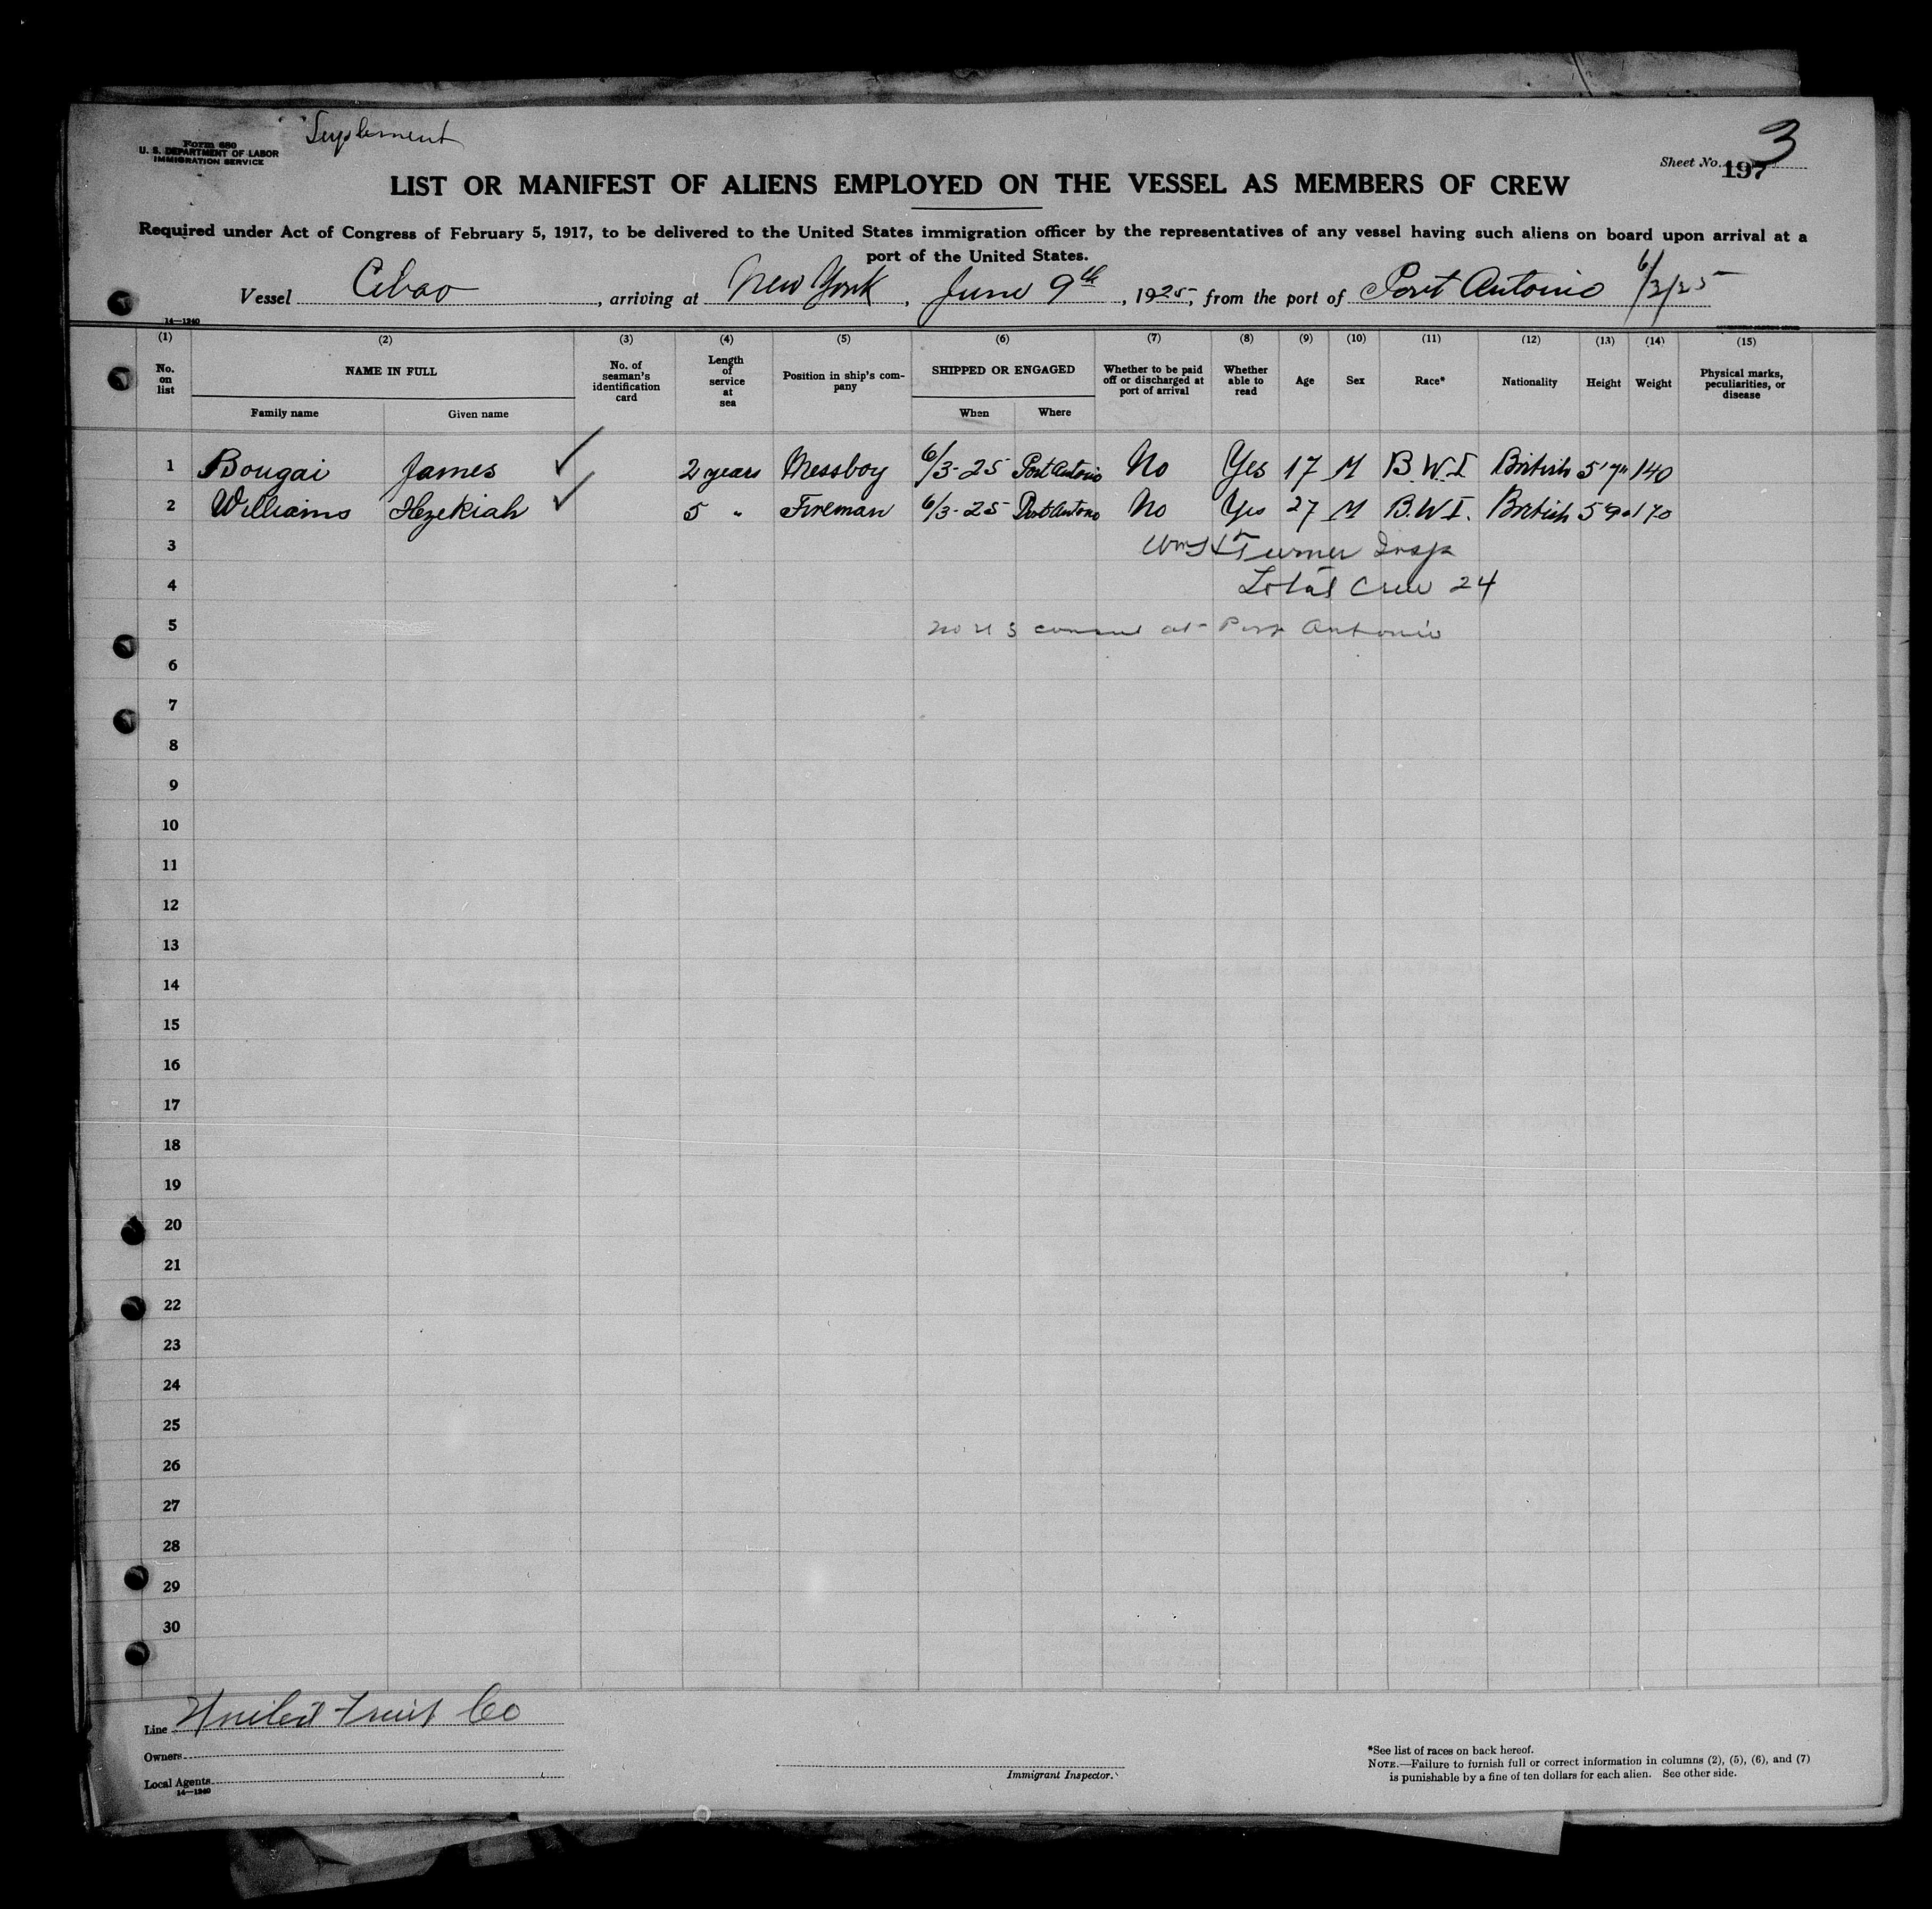 Supplement
Form 680
U. S. DEPARTMENT OF LABOR
IMMIGRATION SERVICE
Sheet No. 3
197
LIST OR MANIFEST OF ALIENS EMPLOYED ON THE VESSEL AS MEMBERS OF CREW
Required under Act of Congress of February 5, 1917, to be delivered to the United States immigration officer by the representatives of any vessel having such aliens on board upon arrival at a
port of the United States.
Vessel Cibao, arriving at New York, June 9th, 1925, from the port of Port Antonio 6/3/25
14—1240
(1) (2) (3) (4) (5) (6) (7) (8) (9) (10) (11) (12) (13) (14) (15)
No. on list
NAME IN FULL
Family name Given name
No. of seaman's identification card
Length of service at sea
Position in ship's company
SHIPPED OR ENGAGED
When Where
Whether to be paid off or discharged at port of arrival
Whether able to read
Age
Sex
Race*
Nationality
Height
Weight
Physical marks, peculiarities, or disease
1 Bougai James ✓ 2 years Messboy 6/3-25 Port Antonio No Yes 17 M B.W.I British 5'7" 140
2 Williams Hezekiah ✓ 5 " Fireman 6/3-25 Port Antonio No Yes 27 M B.W.I. British 5'9" 170
3 Turner Insp
4 Total Crew 24
5 No U S consul at Port Antonio
6
7
8
9
10
11
12
13
14
15
16
17
18
19
20
21
22
23
24
25
26
27
28
29
30
Line United Fruit Co
Owners
Local Agents
14—1240
Immigrant Inspector.
*See list of races on back hereof.
NOTE.—Failure to furnish full or correct information in columns (2), (5), (6), and (7)
is punishable by a fine of ten dollars for each alien. See other side.